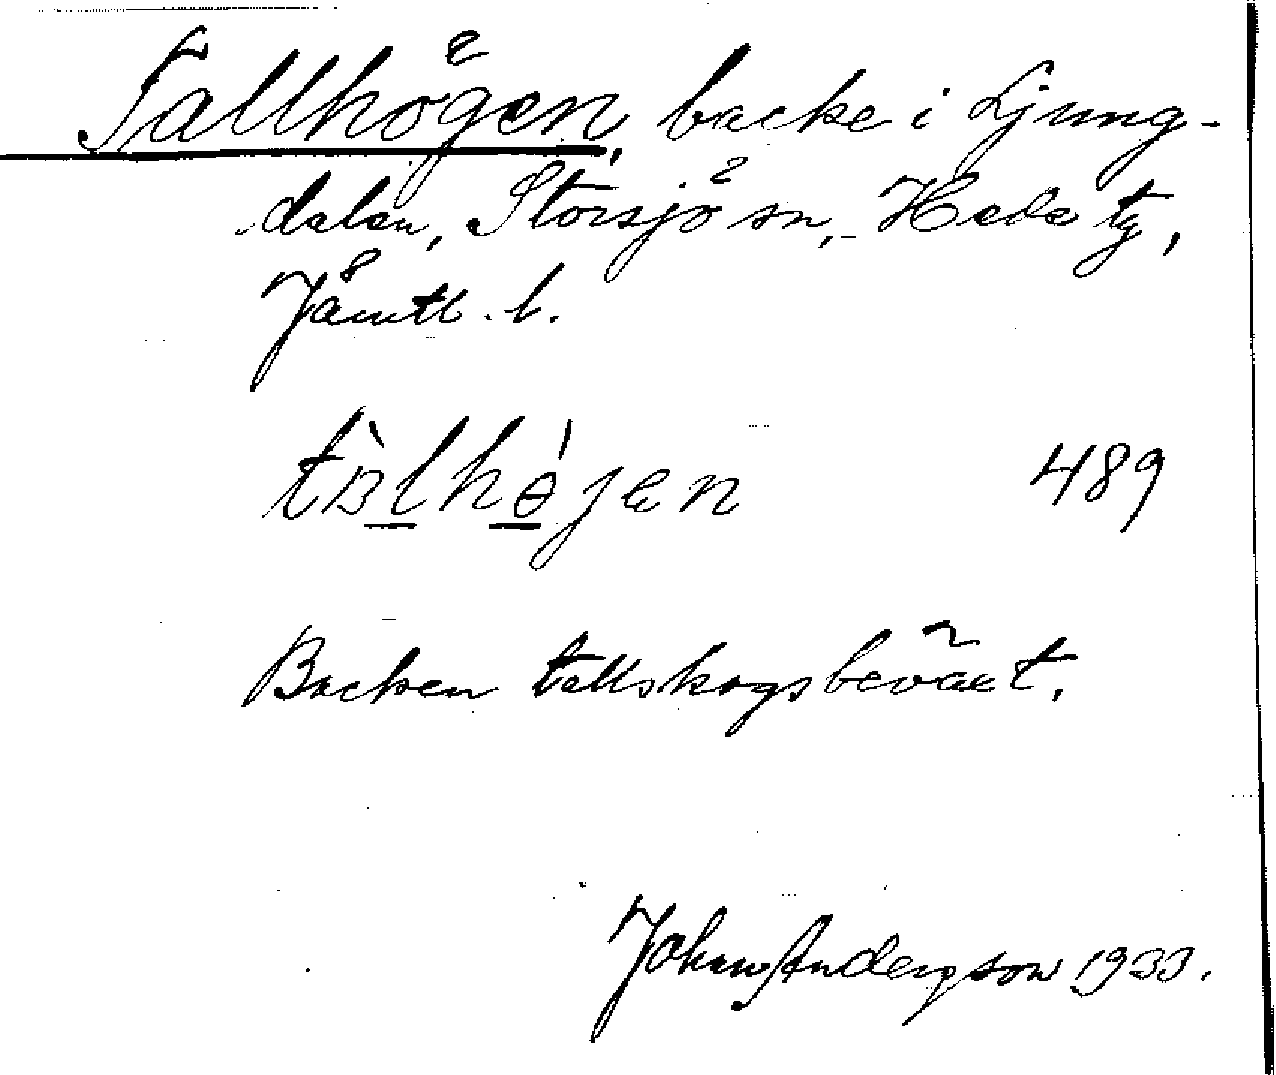 Tallhögen, backe i Ljung-
dalen, Storsjö sn, Hede tg,
Jämtl. l.
489
Backen tallskogsbeväxt.
Johan Anderson 1933.